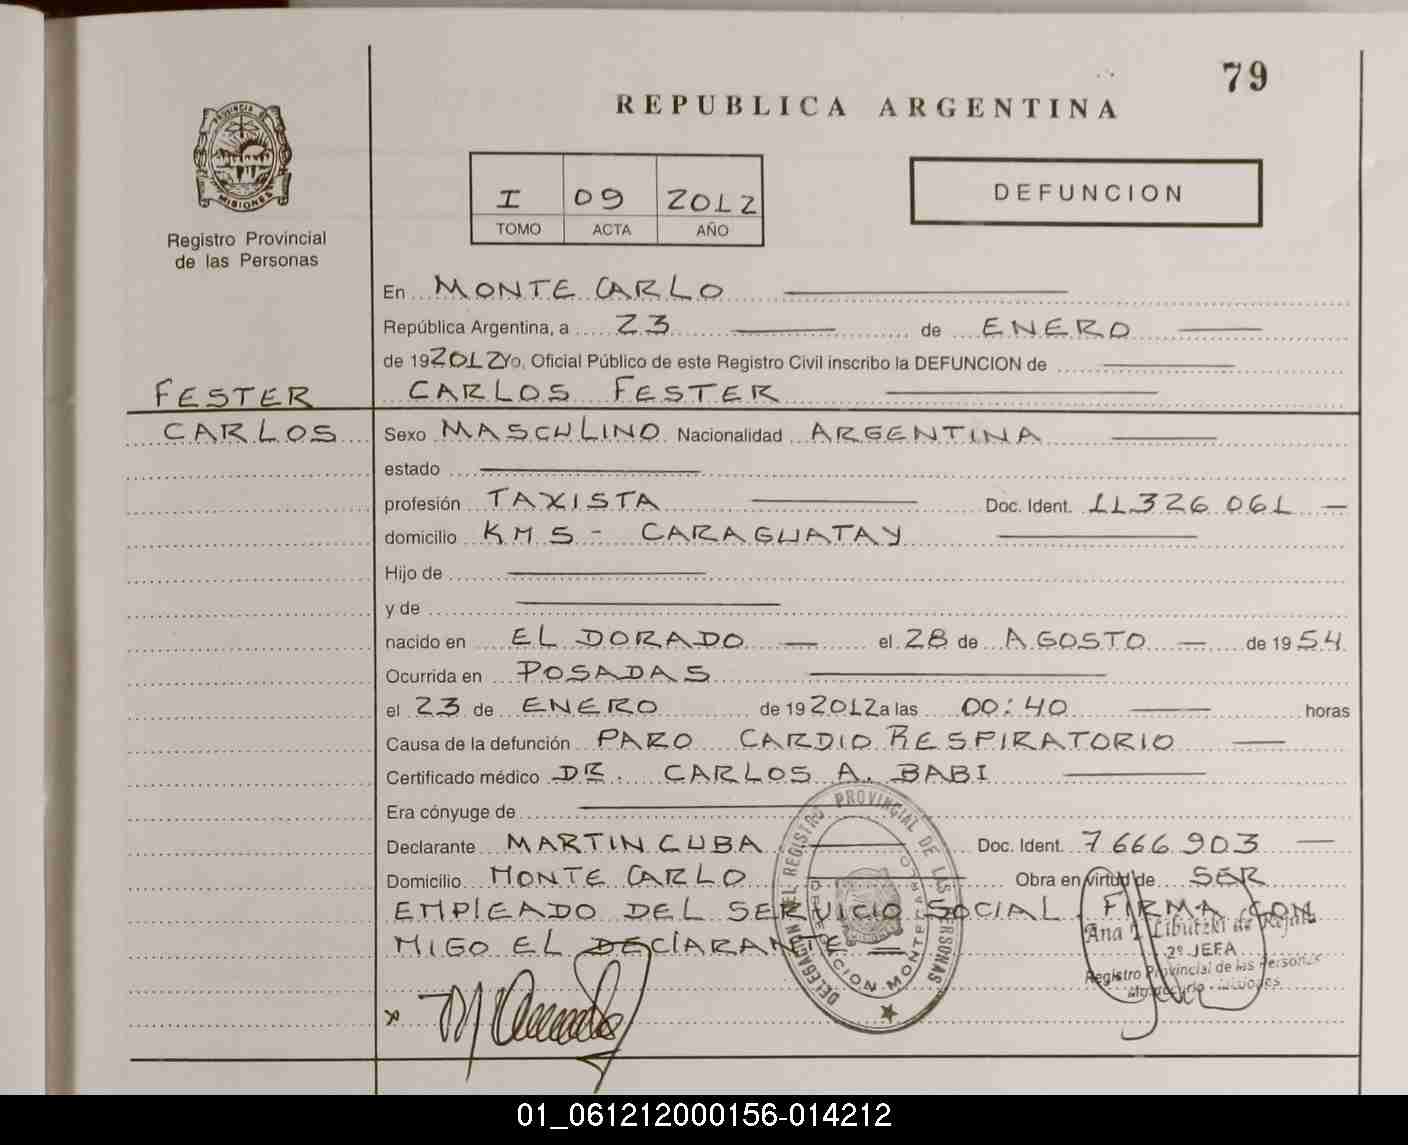 79
REPUBLICA ARGENTINA
PROVINCIA DE
MISIONES
Registro Provincial
de las Personas
I 09 2012
TOMO ACTA AÑO
DEFUNCION
En MONTE CARLO
República Argentina, a 23 de ENERO
de 192012 Yo, Oficial Público de este Registro Civil inscribo la DEFUNCION de
FESTER CARLOS FESTER
CARLOS Sexo MASCULINO Nacionalidad ARGENTINA
estado
profesión TAXISTA Doc. Ident. 11.326.061
domicilio KM 5 - CARAGUATAY
Hijo de
y de
nacido en EL DORADO el 28 de AGOSTO de 1954
Ocurrida en POSADAS
el 23 de ENERO de 192012 a las 00:40 horas
Causa de la defunción PARO CARDIO RESPIRATORIO
Certificado médico DR. CARLOS A. BABI
Era cónyuge de
Declarante MARTIN CUBA Doc. Ident. 7.666.903
Domicilio MONTE CARLO Obra en virtud de SER
EMPLEADO DEL SERVICIO SOCIAL. FIRMA CON
MIGO EL DECLARANTE
DELEGACION DEL REGISTRO PROVINCIAL DE LAS PERSONAS
MONTE
Ana
2º JEFA
Registro Provincial de las Personas
x
01_061212000156-014212